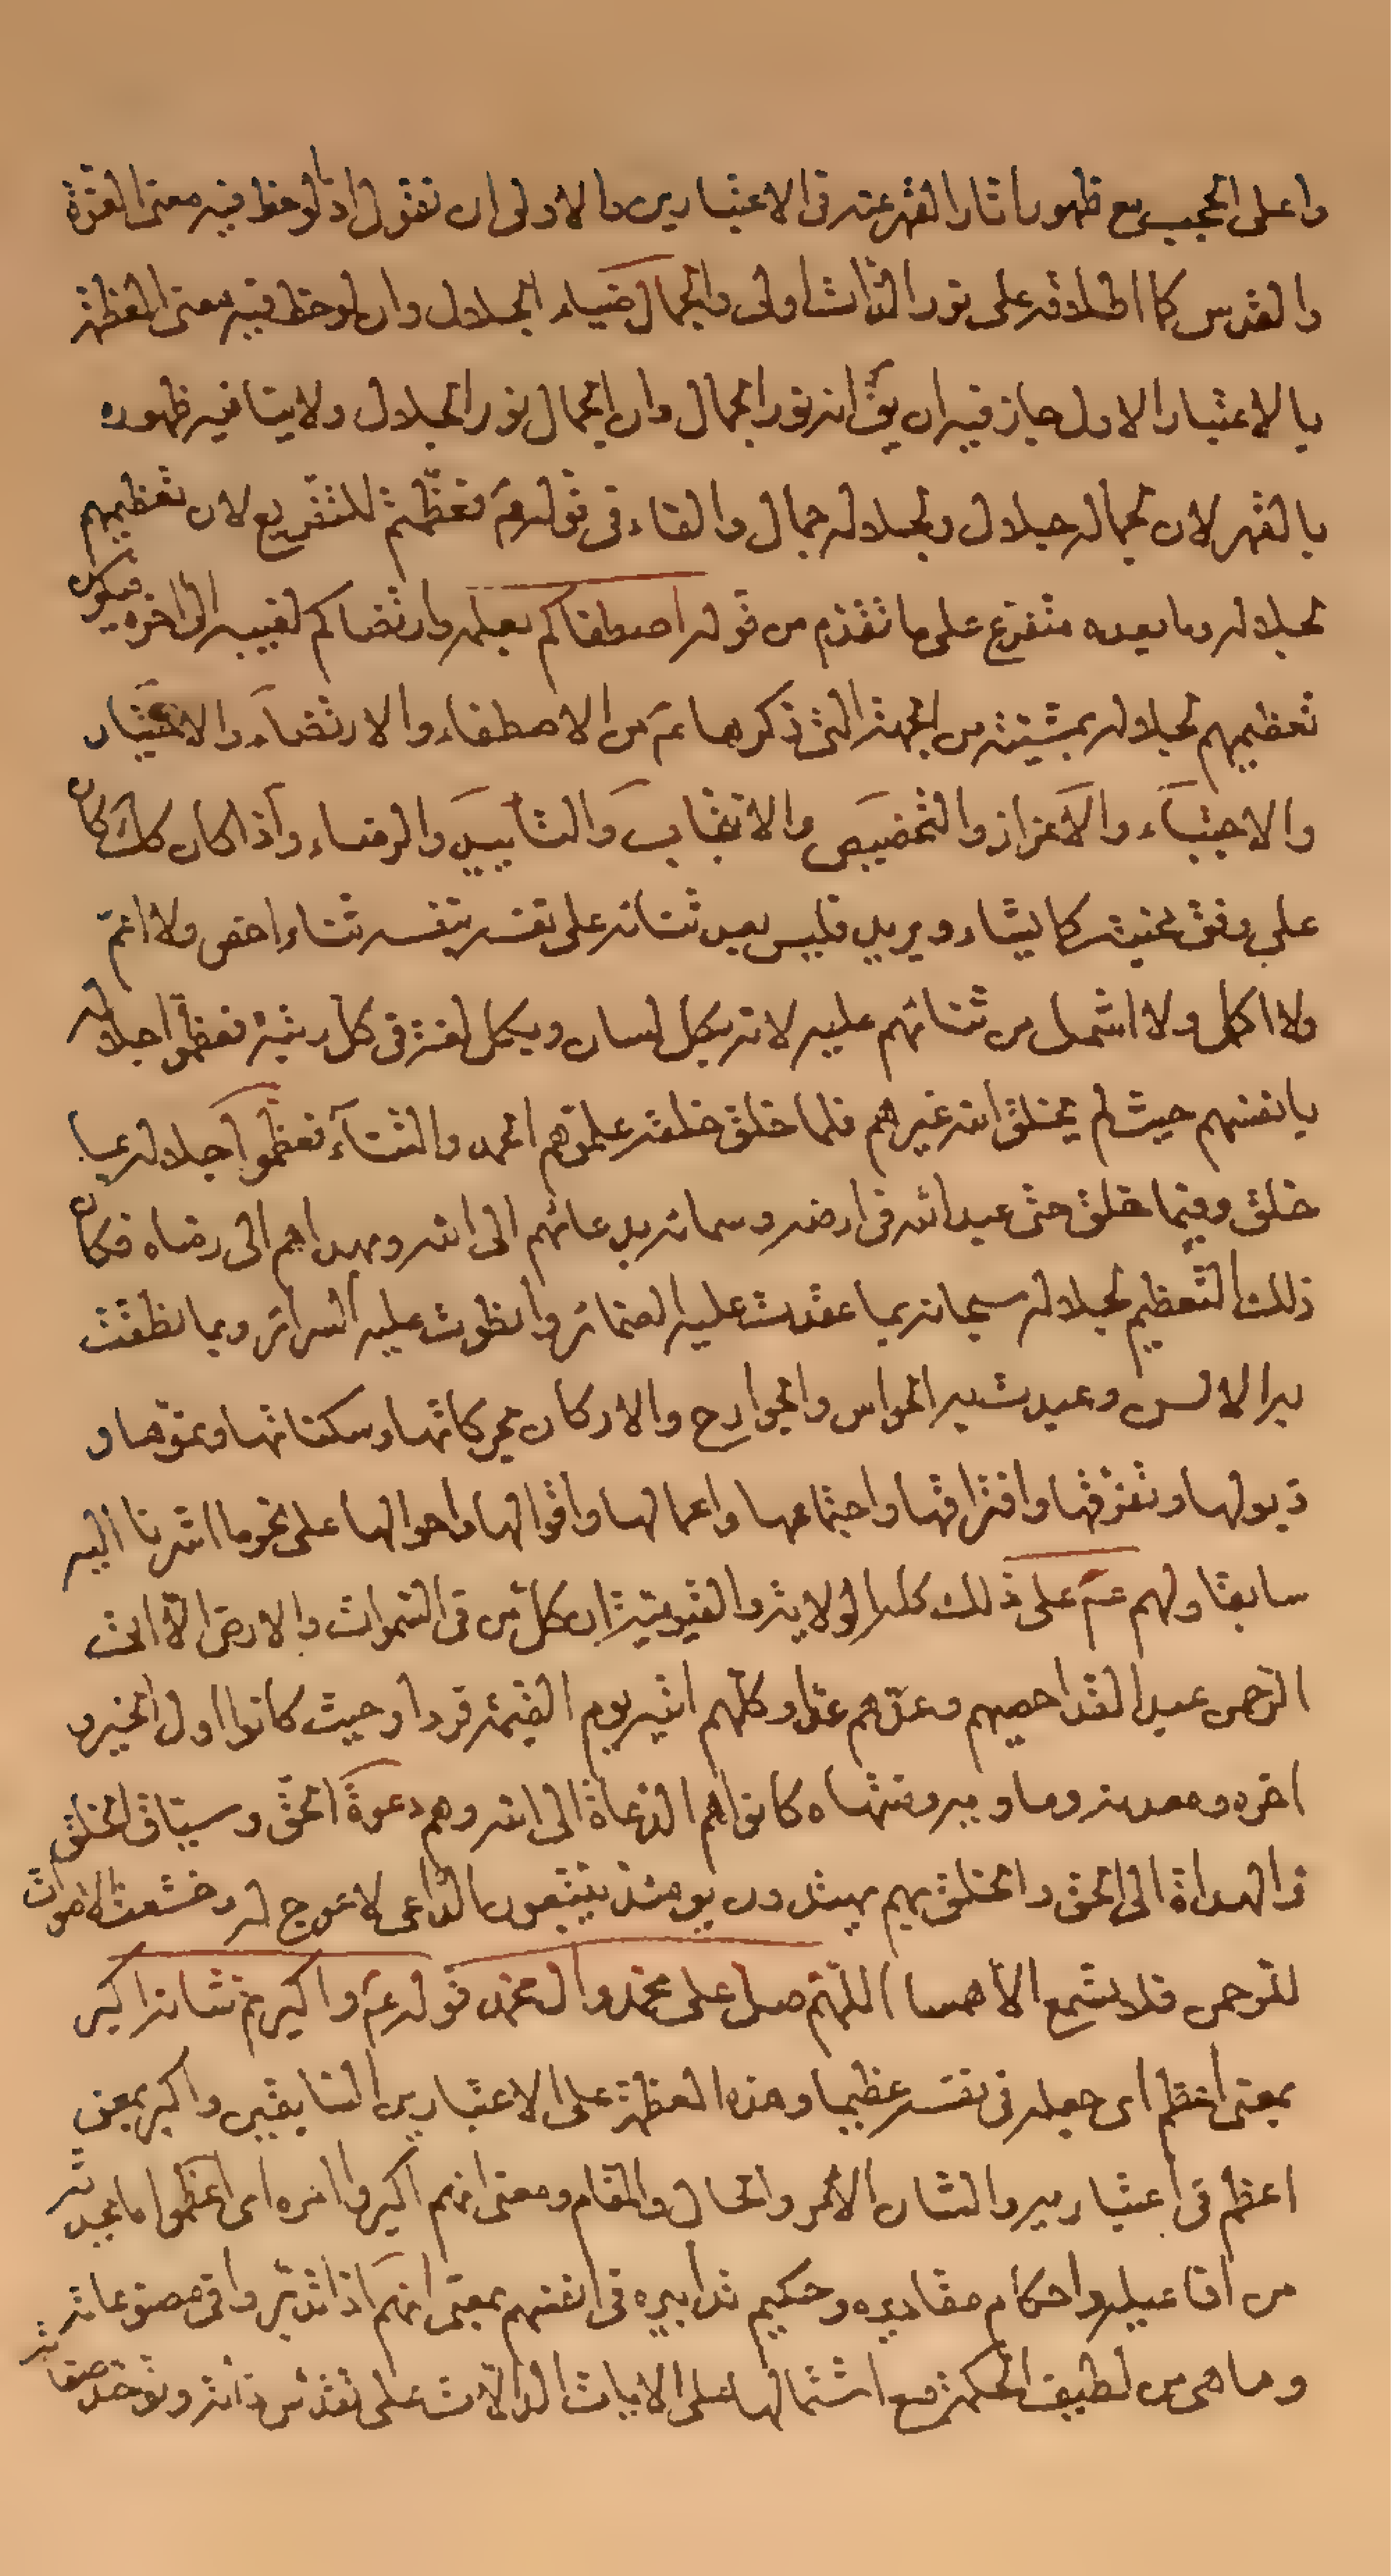 واعلى الحجب مع ظهور اثار القهر عنه فى الاعتبارين والاولى ان نقول اذا لوحظ فيه معنى العزة
والقدس كما اطلاقه على نور الذات اولى والجمال ضياء الجلال وان لوحظ فيه معنى العظمة
بالاعتبار الاول جاز فيه ان يقّ انه نور الجمال وان الجمال نور الجلال ولا ينافيه ظهوره
بالقهر لان لجماله جلال ولجلاله جمال والفاء فى قوله عَم فعظّمتم للتفريع لان تعظيمهم
لجلاله وما بعده متفرع على ما تقدم من قوله اصطفاكم بعلمه وارتضاكم لغيبه الى اخره فيكون
تعظيمهم لجلاله بمشيته من الجهة التى ذكرها عَم من الاصطفاء والارتضاء والاختيار
والاجتباء والاعزاز والتخصيص والانتجاب والتأييد والرضاء واذا كان كك كان
على وفق محبته كما يشاء ويريد فليس بعد ثنائه على نفسه بنفسه ثناء اخص ولا اتم
ولا اكمل ولا اشمل من ثنائهم عليه لانه بكل لسان وبكل لغة فى كل رتبة فعظّموا جلاله
بانفسهم حيث لم يخلق الله غيرهم فلما خلق خلقه علموهم الحمد والثناء فعظّموا جلاله بما
خلق وفيما خلق حتى عبد الله فى ارضه وسمائه بدعائهم الى الله وبهداهم الى رضاه فكان
ذلك التعظيم لجلاله سبحانه بما عقدت عليه الضمائر وانطوت عليه السرائر وبما نطقت
به الالسن وعبدت به الحواس والجوارح والاركان بحركاتها وسكناتها ونموّها و
ذبولها وتفرقها وافتراقها واجتماعها واعمالها واقوالها واحوالها على نحو ما اشرنا اليه
سابقا ولهم عَم على ذلك كله الولاية والقيومية ان كل من فى السموات والارض الّا اتى
الرحمن عبدا لقد احصيهم وعدّهم عدّا وكلهم اتيه يوم القيمة فردا وحيث كانوا اول الخير و
اخره ومعدنه وماويه ومنتهاه كانوا هم الدعاة الى الله وهم دعوة الحق وسيّاق الخلق
والهداة الى الحق والخلق بهم يهتدون يومئذ يتبعون الداعى لا عوج له وخشعت الاصوات
للرحمن فلا تسمع الا همسا اللهم صل على محمد وال محمد قوله عَم واكبرتم شانه اكبر
بمعنى اعظم اى جعله فى نفسه عظيما وهذه العظمة على الاعتبارين السابقين واكبر بمعنى
اعظم فى اعتباريه والشان الامر والحال والمقام ومعنى انهم اكبروا امره اى اعظموا ما عجد
من افاعيله واحكام مقاديره وحكيم تدابيره فى انفسهم بمعنى انهم اذا تدبّروا فى مصنوعاته
وما هى من لطيف الحكمة مع اشتمالها على الايات الدالات على تقدّس ذاته وتوحّد صفاته